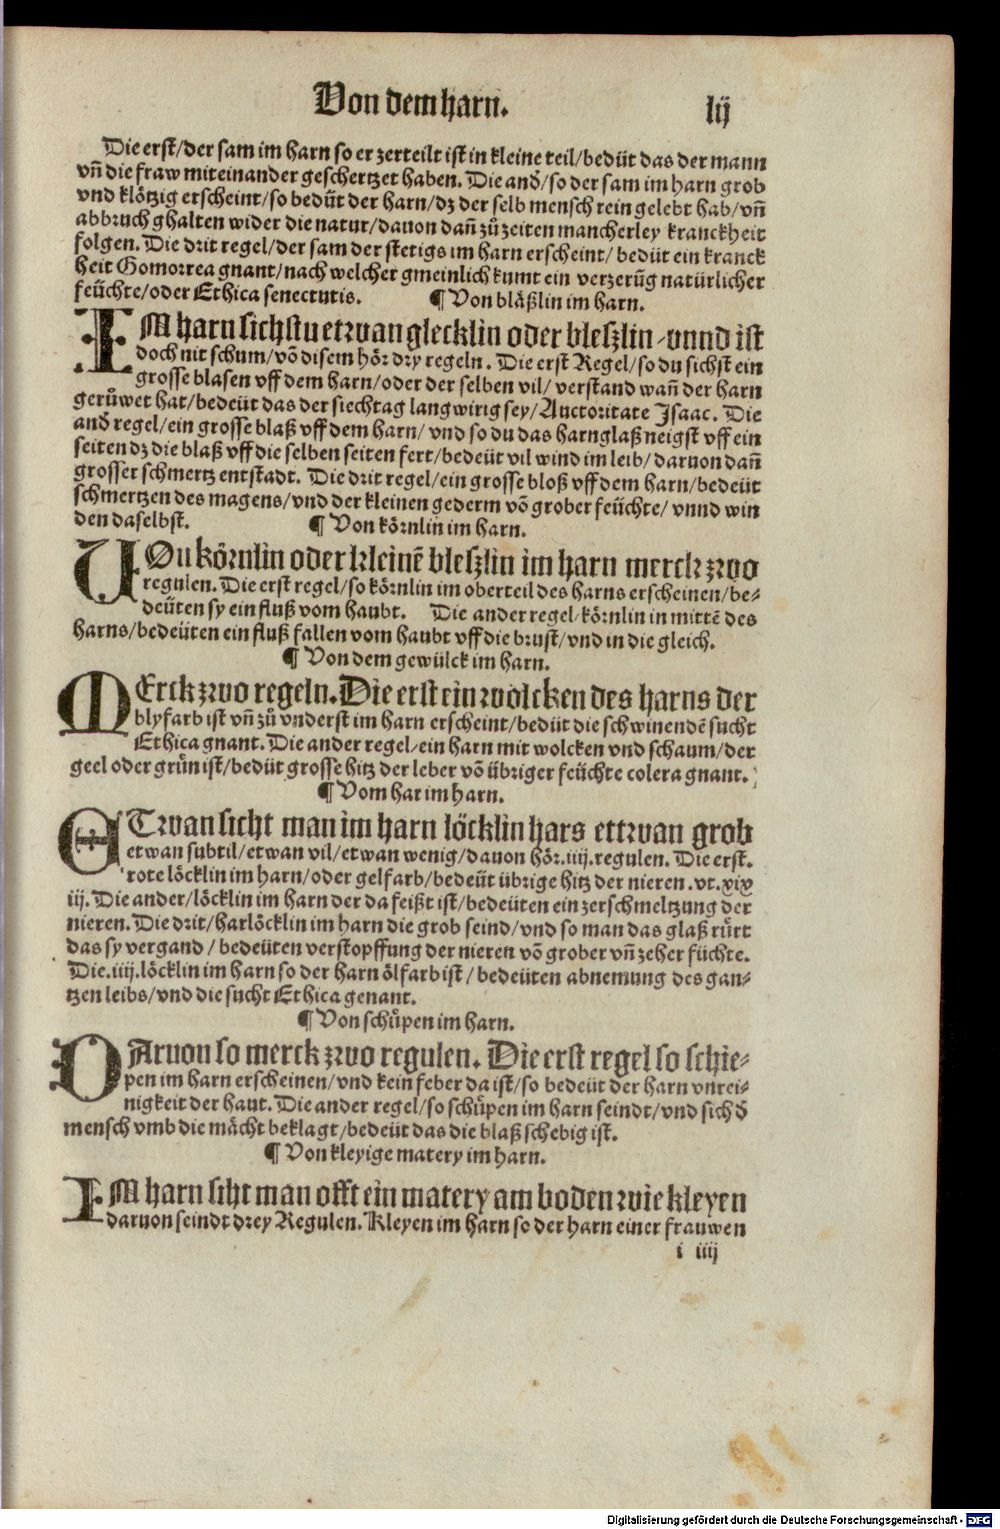 Von dem harn.
lij
Die erst/der sam im harn so er zerteilt ist in kleine teil/bedüt das der mann
vñ die fraw miteinander geschertzet haben. Die and̾/so der sam im harn grob
vnd klötzig erscheint/so bedüt der harn/dz der selb mensch rein gelebt hab/vñ
abbruch ghalten wider die natur/dauon dañ zů zeiten mancherley kranckheit
folgen. Die drit regel/der sam der stetigs im harn erscheint/bedüt ein kranck
heit Gomorrea gnant/nach welcher gmeinlich kumt ein verzerũg natürlicher
feüchte/oder Ethica senectutis. ¶ Von bläßlin im harn.
IM harn sichstu etwan glecklin oder bleszlin/vnnd ist
doch nit schum/võ disem hör dry regeln. Die erst Regel/so du sichst ein
grosse blasen vff dem harn/oder der selben vil/verstand wañ der harn
gerůwet hat/bedeüt das der siechtag langwirig sey/Auctoritate Isaac. Die
and̾ regel/ein grosse blaß vff dem harn/vnd so du das harnglaß neigst vff ein
seiten dz die blaß vff die selben seiten fert/bedeüt vil wind im leib/daruon dañ
grosser schmertz entstadt. Die drit regel/ein grosse bloß vff dem harn/bedeüt
schmertzen des magens/vnd der kleinen gederm võ grober feüchte/vnnd win
den daselbst. ¶ Von körnlin im harn.
VOn körnlin oder kleinẽ bleszlin im harn merck zwo
regulen. Die erst regel/so körnlin im oberteil des harns erscheinen/be-
deüten sy ein fluß vom haubt. Die ander regel/körnlin in mittẽ des
harns/bedeüten ein fluß fallen vom haubt vff die brust/vnd in die gleich.
¶ Von dem gewülck im harn.
MErck zwo regeln. Die erst ein wolcken des harns der
blyfarb ist vñ zů vnderst im harn erscheint/bedüt die schwinendẽ sucht
Ethica gnant. Die ander regel/ein harn mit wolcken vnd schaum/der
geel oder grün ist/bedüt grosse hitz der leber võ übriger feüchte colera gnant.
¶ Vom har im harn.
ETwan sicht man im harn löcklin hars ettwan grob
etwan subtil/etwan vil/etwan wenig/dauon hör.iiij.regulen. Die erst.
rote löcklin im harn/oder gelfarb/bedeüt übrige hitz der nieren.vt.xix
ij. Die ander/löcklin im harn der da feißt ist/bedeüten ein zerschmeltzung der
nieren. Die drit/harlöcklin im harn die grob seind/vnd so man das glaß rürt
das sy vergand/bedeüten verstopffung der nieren võ grober vñ zeher füchte.
Die.iiij.löcklin im harn so der harn ölfarb ist/bedeüten abnemung des gan-
tzen leibs/vnd die sucht Ethica genant.
¶ Von schůpen im harn.
DAruon so merck zwo regulen. Die erst regel so schie-
pen im harn erscheinen/vnd kein feber da ist/so bedeüt der harn vnrei-
nigkeit der haut. Die ander regel/so schůpen im harn seindt/vnd sich d̾
mensch vmb die mächt beklagt/bedeüt das die blaß schebig ist.
¶ Von kleyige matery im harn.
IM harn siht man offt ein matery am boden wie kleyen
daruon seindt drey Regulen. Kleyen im harn so der harn einer frauwen
i iiij
Digitalisierung gefördert durch die Deutsche Forschungsgemeinschaft - DFG